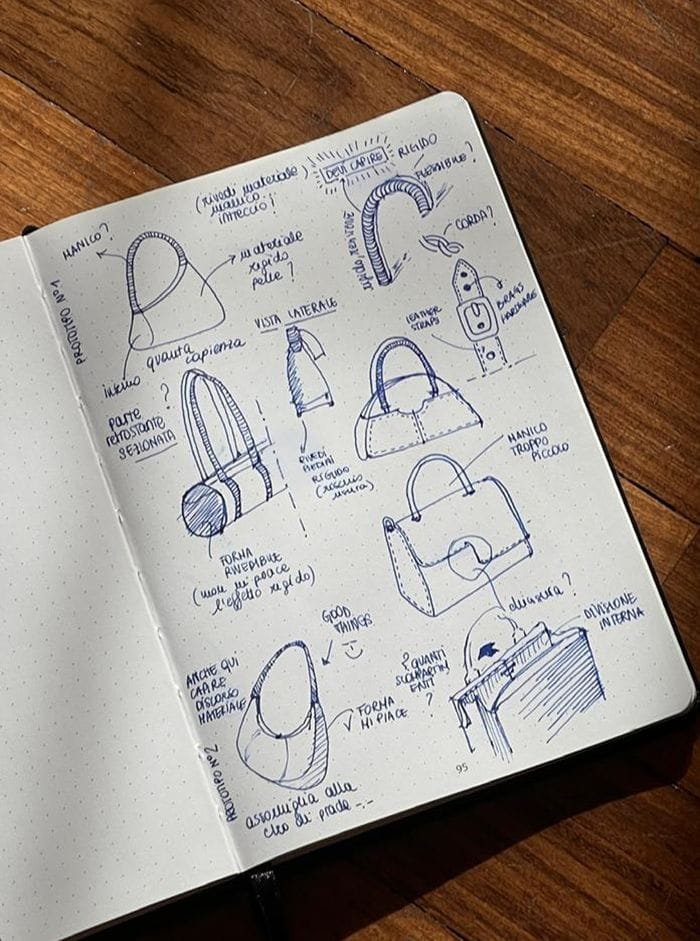 (rivedi materiale
manico
intreccio!
DEVI CAPIRE
RIGIDO
FLESSIBILE?
CORDA?
MANICO?
materiale
rigido
pelle?
PROTOTIPO N°1
interno quanta capienza
?
VISTA LATERALE
LEATHER
STRAPS
HARDWARE
PARTE
RETROSTANTE
SEZIONATA
RIVEDI
RIGIDO
(rischio
usura)
MANICO
TROPPO
PICCOLO
FORMA
RIVEDIBILE
(non mi piace
l'effetto rigido)
chiusura?
DIVISIONE
INTERNA
GOOD
THINGS
ANCHE QUI
CAPIRE
DISCORSO
MATERIALE
FORMA
MI PIACE
? QUANTI
SCOMPARTIM
ENTI
?
PROTOTIPO N°2
assomiglia alla
cleo di prada -.-
95